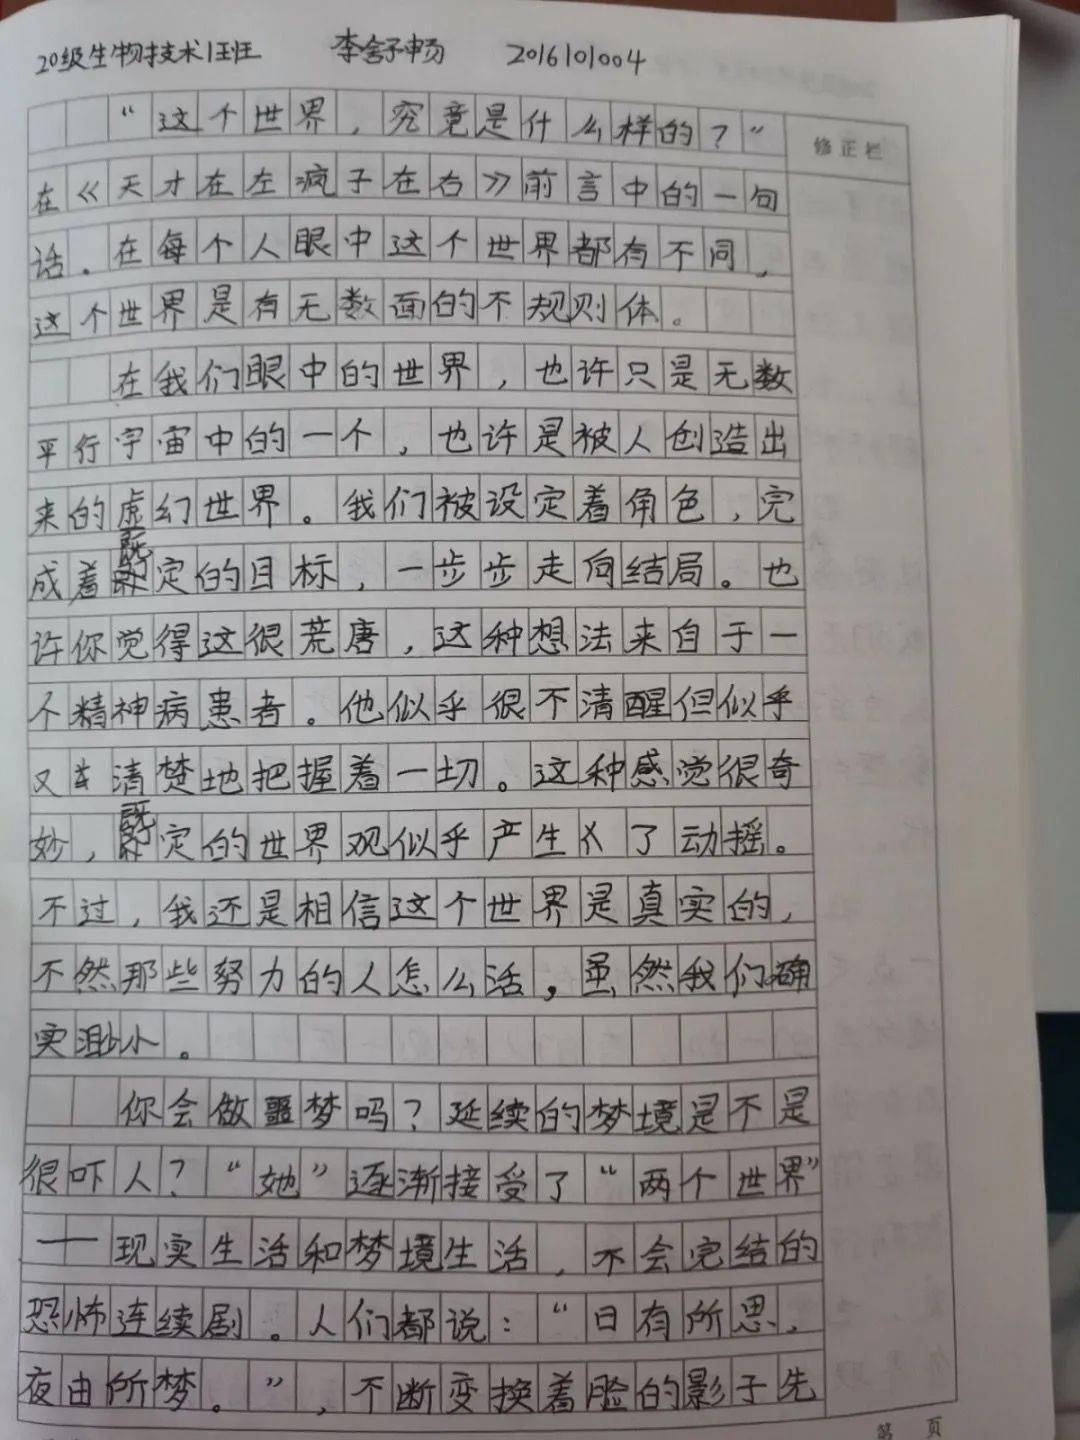 20级生物技术1班 李舒畅 2016101004
“这个世界，究竟是什么样的？”
修正栏
在《天才在左疯子在右》前言中的一句
话。在每个人眼中这个世界都有不同，
这个世界是有无数面的不规则体。
在我们眼中的世界，也许只是无数
平行宇宙中的一个，也许是被人创造出
来的虚幻世界。我们被设定着角色，完
成着既定的目标，一步步走向结局。也
许你觉得这很荒唐，这种想法来自于一
个精神病患者。他似乎很不清醒但似乎
又清楚地把握着一切。这种感觉很奇
妙，既定的世界观似乎产生了动摇。
不过，我还是相信这个世界是真实的，
不然那些努力的人怎么活，虽然我们确
实渺小。
你会做噩梦吗？延续的梦境是不是
很吓人？“她”逐渐接受了“两个世界”
——现实生活和梦境生活，不会完结的
恐怖连续剧。人们都说：“日有所思，
夜由所梦。”，不断变换着脸的影子先
第 页